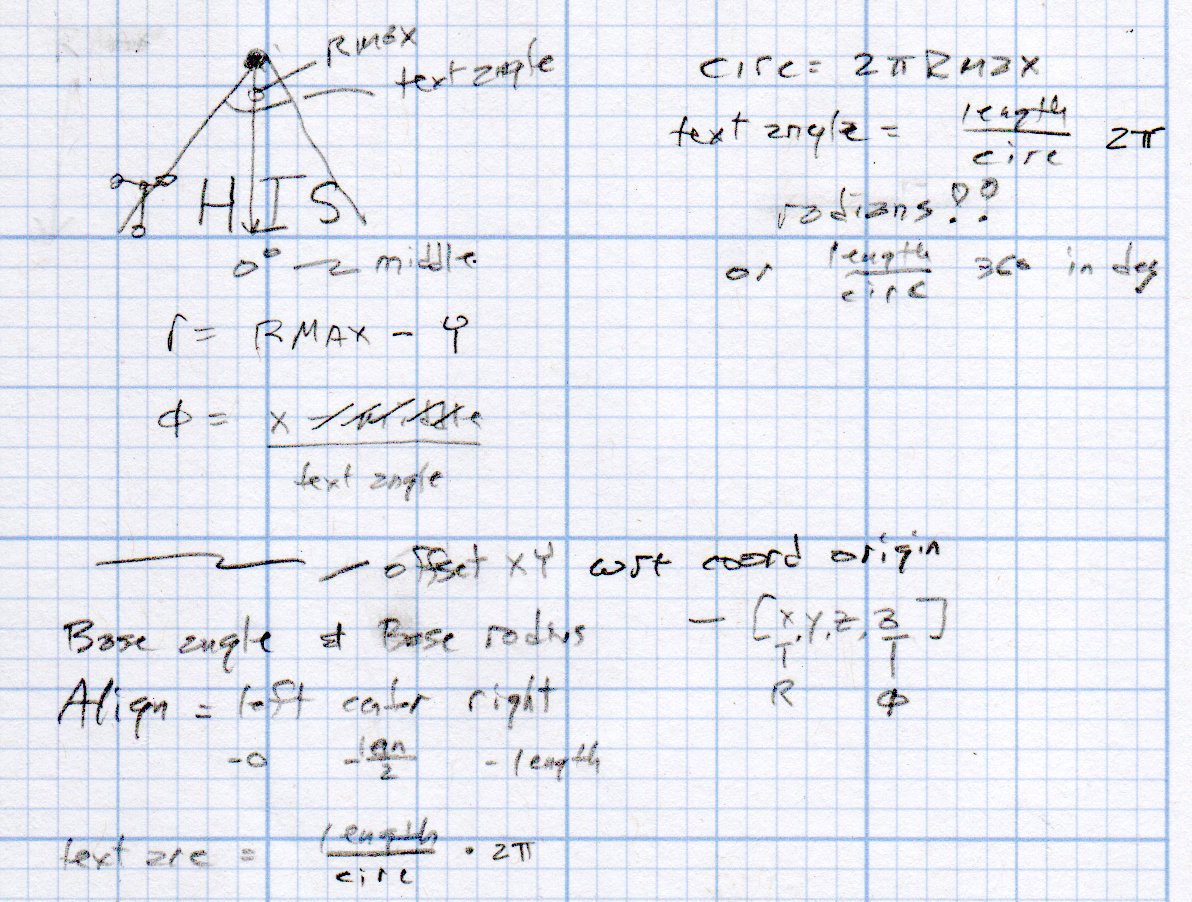 RMAX
text angle
THIS
0° middle
r = RMAX - Y
Φ = x
text angle
circ = 2π RMAX
text angle = length / circ 2π
radians!!
or length / circ 360 in deg
offset XY wrt coord origin
Base angle & Base radius
- [X, Y, Z, B]
R Φ
Align = left center right
-0 -len/2 -length
text arc = length / circ · 2π